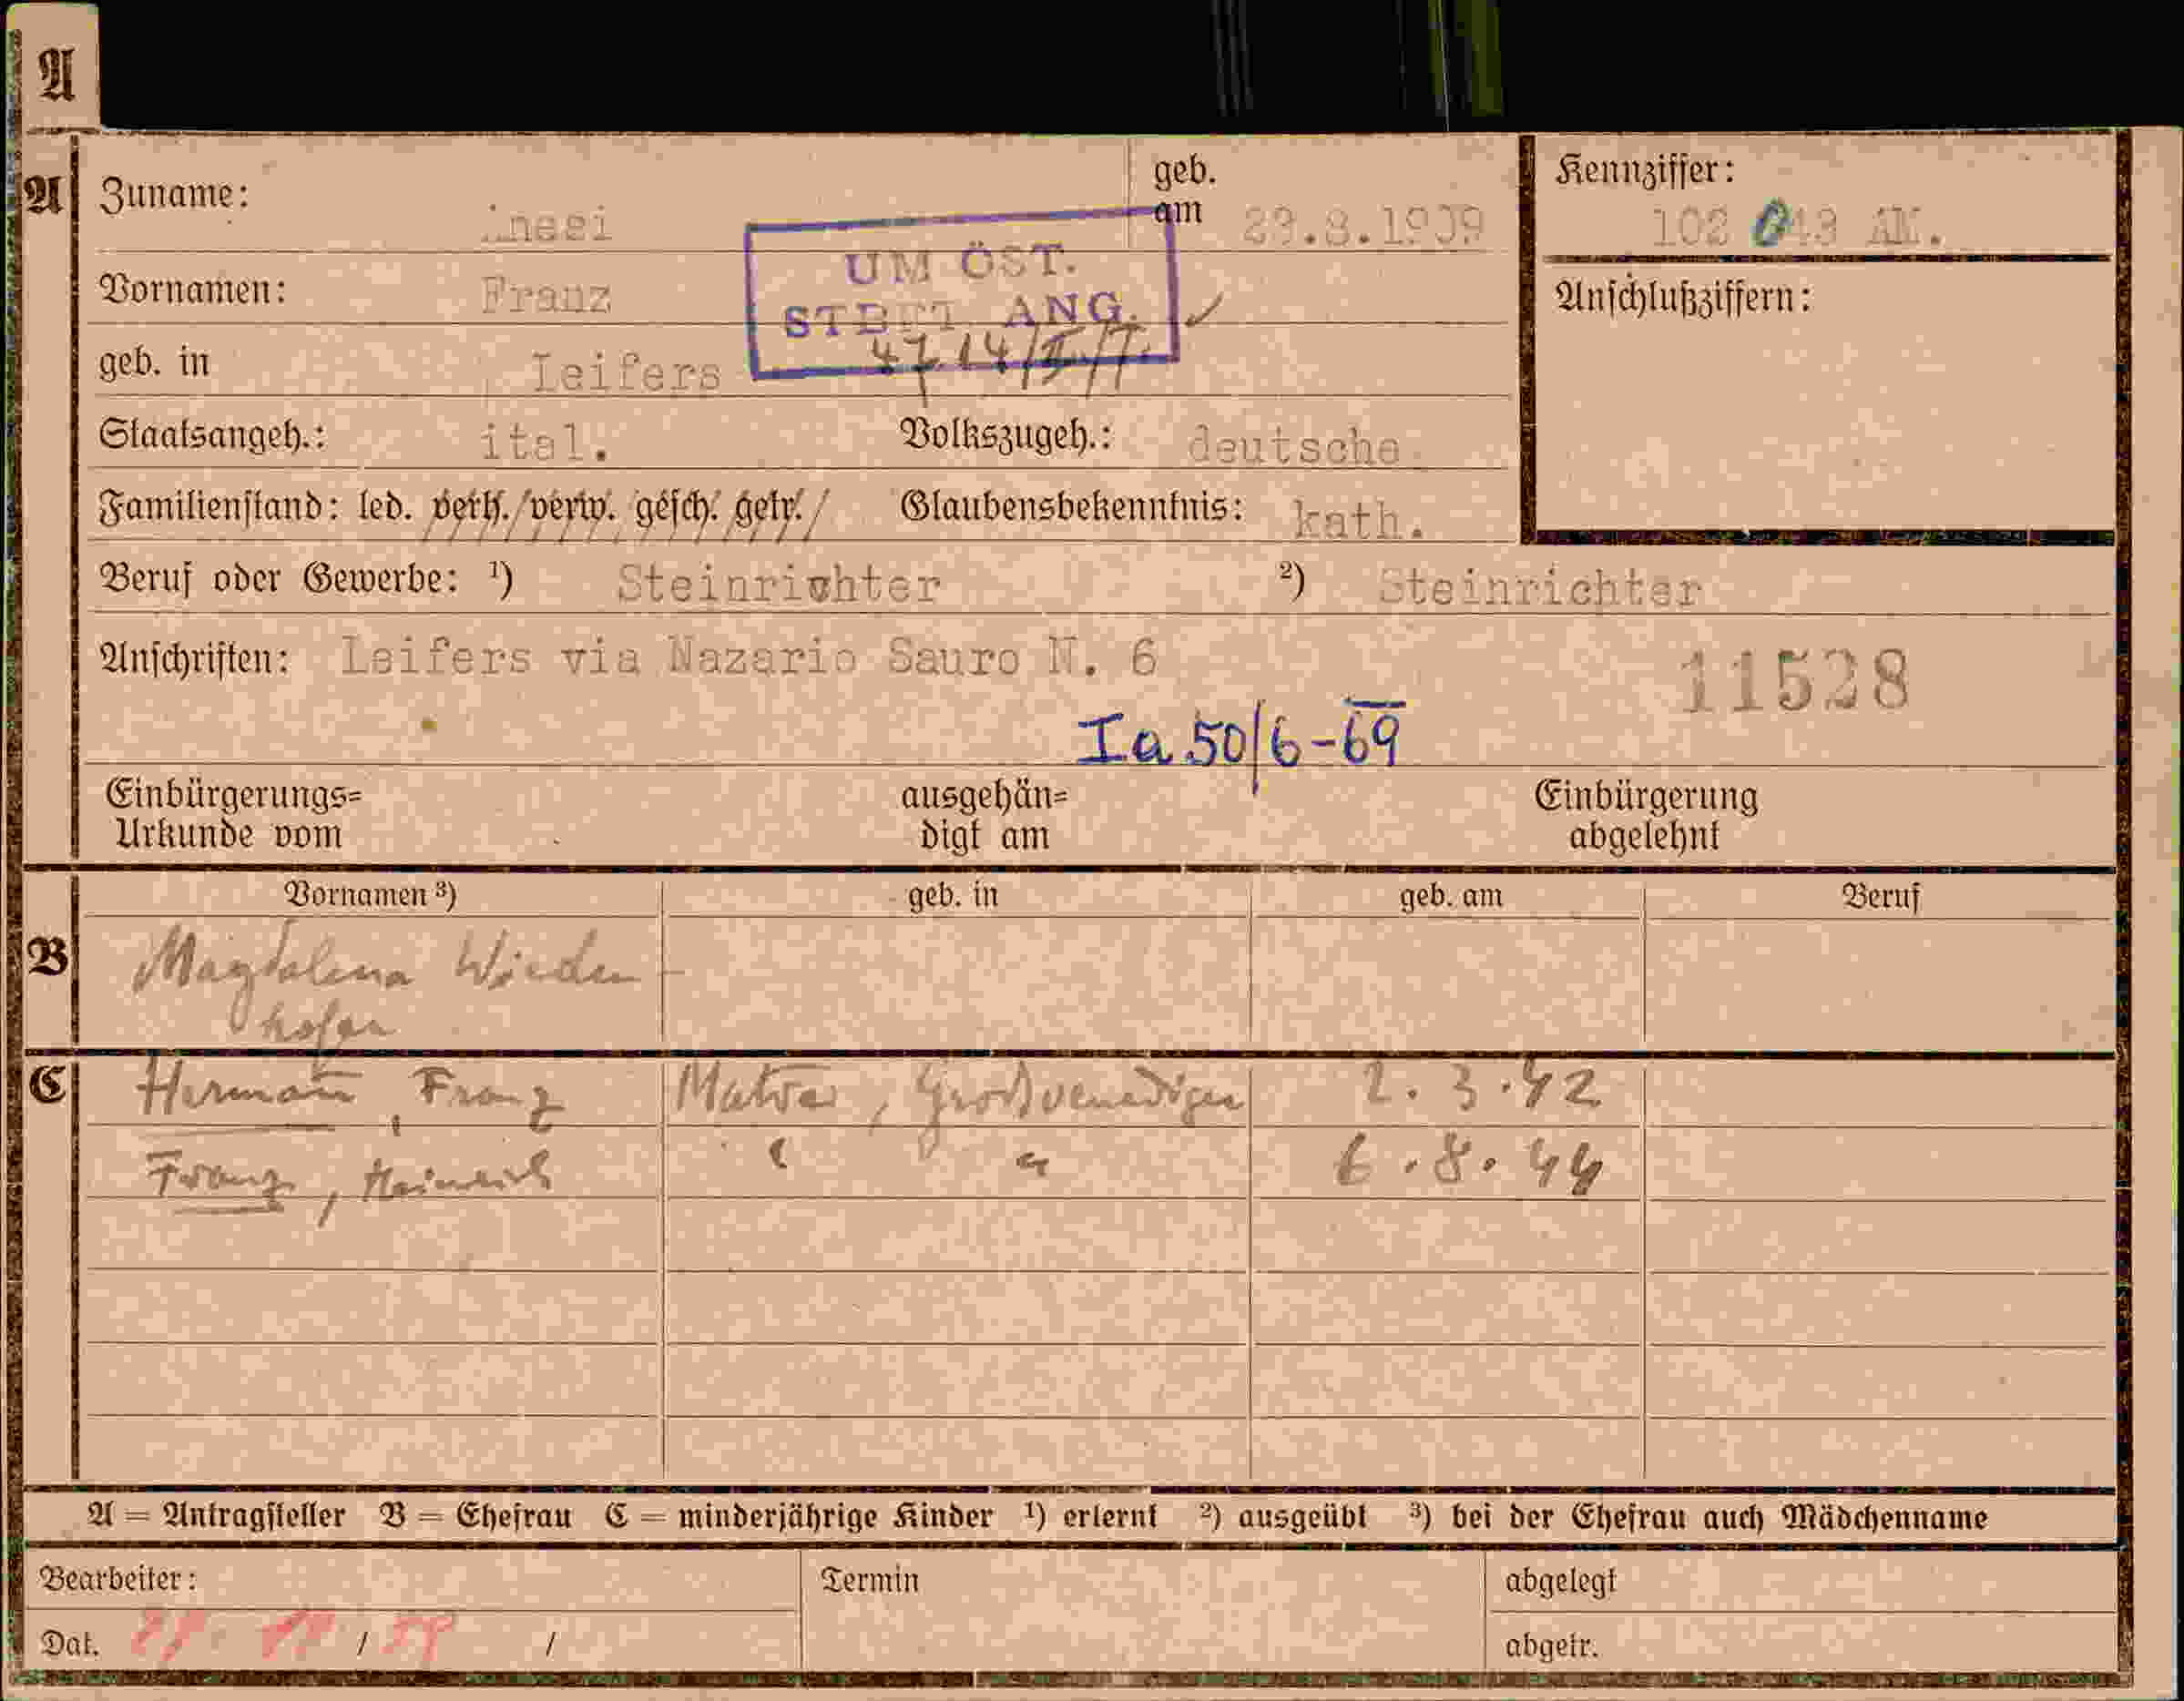 A
A
Zuname:
geb. am 29.8.1909
Kennziffer:
102 043 AM.
UM ÖST.
STBGT. ANG.
4714/II/7.
Vornamen: Franz
Anschlußziffern:
geb. in Leifers
Staatsangeh.: ital. Volkszugeh.: deutsche
Familienstand: led. verh. verw. gesch. getr. Glaubensbekenntnis: kath.
Beruf oder Gewerbe: ¹) Steinrichter ²) Steinrichter
Anschriften: Leifers via Nazario Sauro N. 6
11528
Ia 50/6-69
Einbürgerungs=
Urkunde vom
ausgehän=
digt am
Einbürgerung
abgelehnt
Vornamen ³) geb. in geb. am Beruf
B
Magdalena Wieden
hofer
C
Hermann, Franz Matrei, Großvenediger 2.3.42
Franz, Heinrich " " 6.8.44
A = Antragsteller B = Ehefrau C = minderjährige Kinder ¹) erlernt ²) ausgeübt ³) bei der Ehefrau auch Mädchenname
Bearbeiter: Termin abgelegt
Dat. / / abgetr.